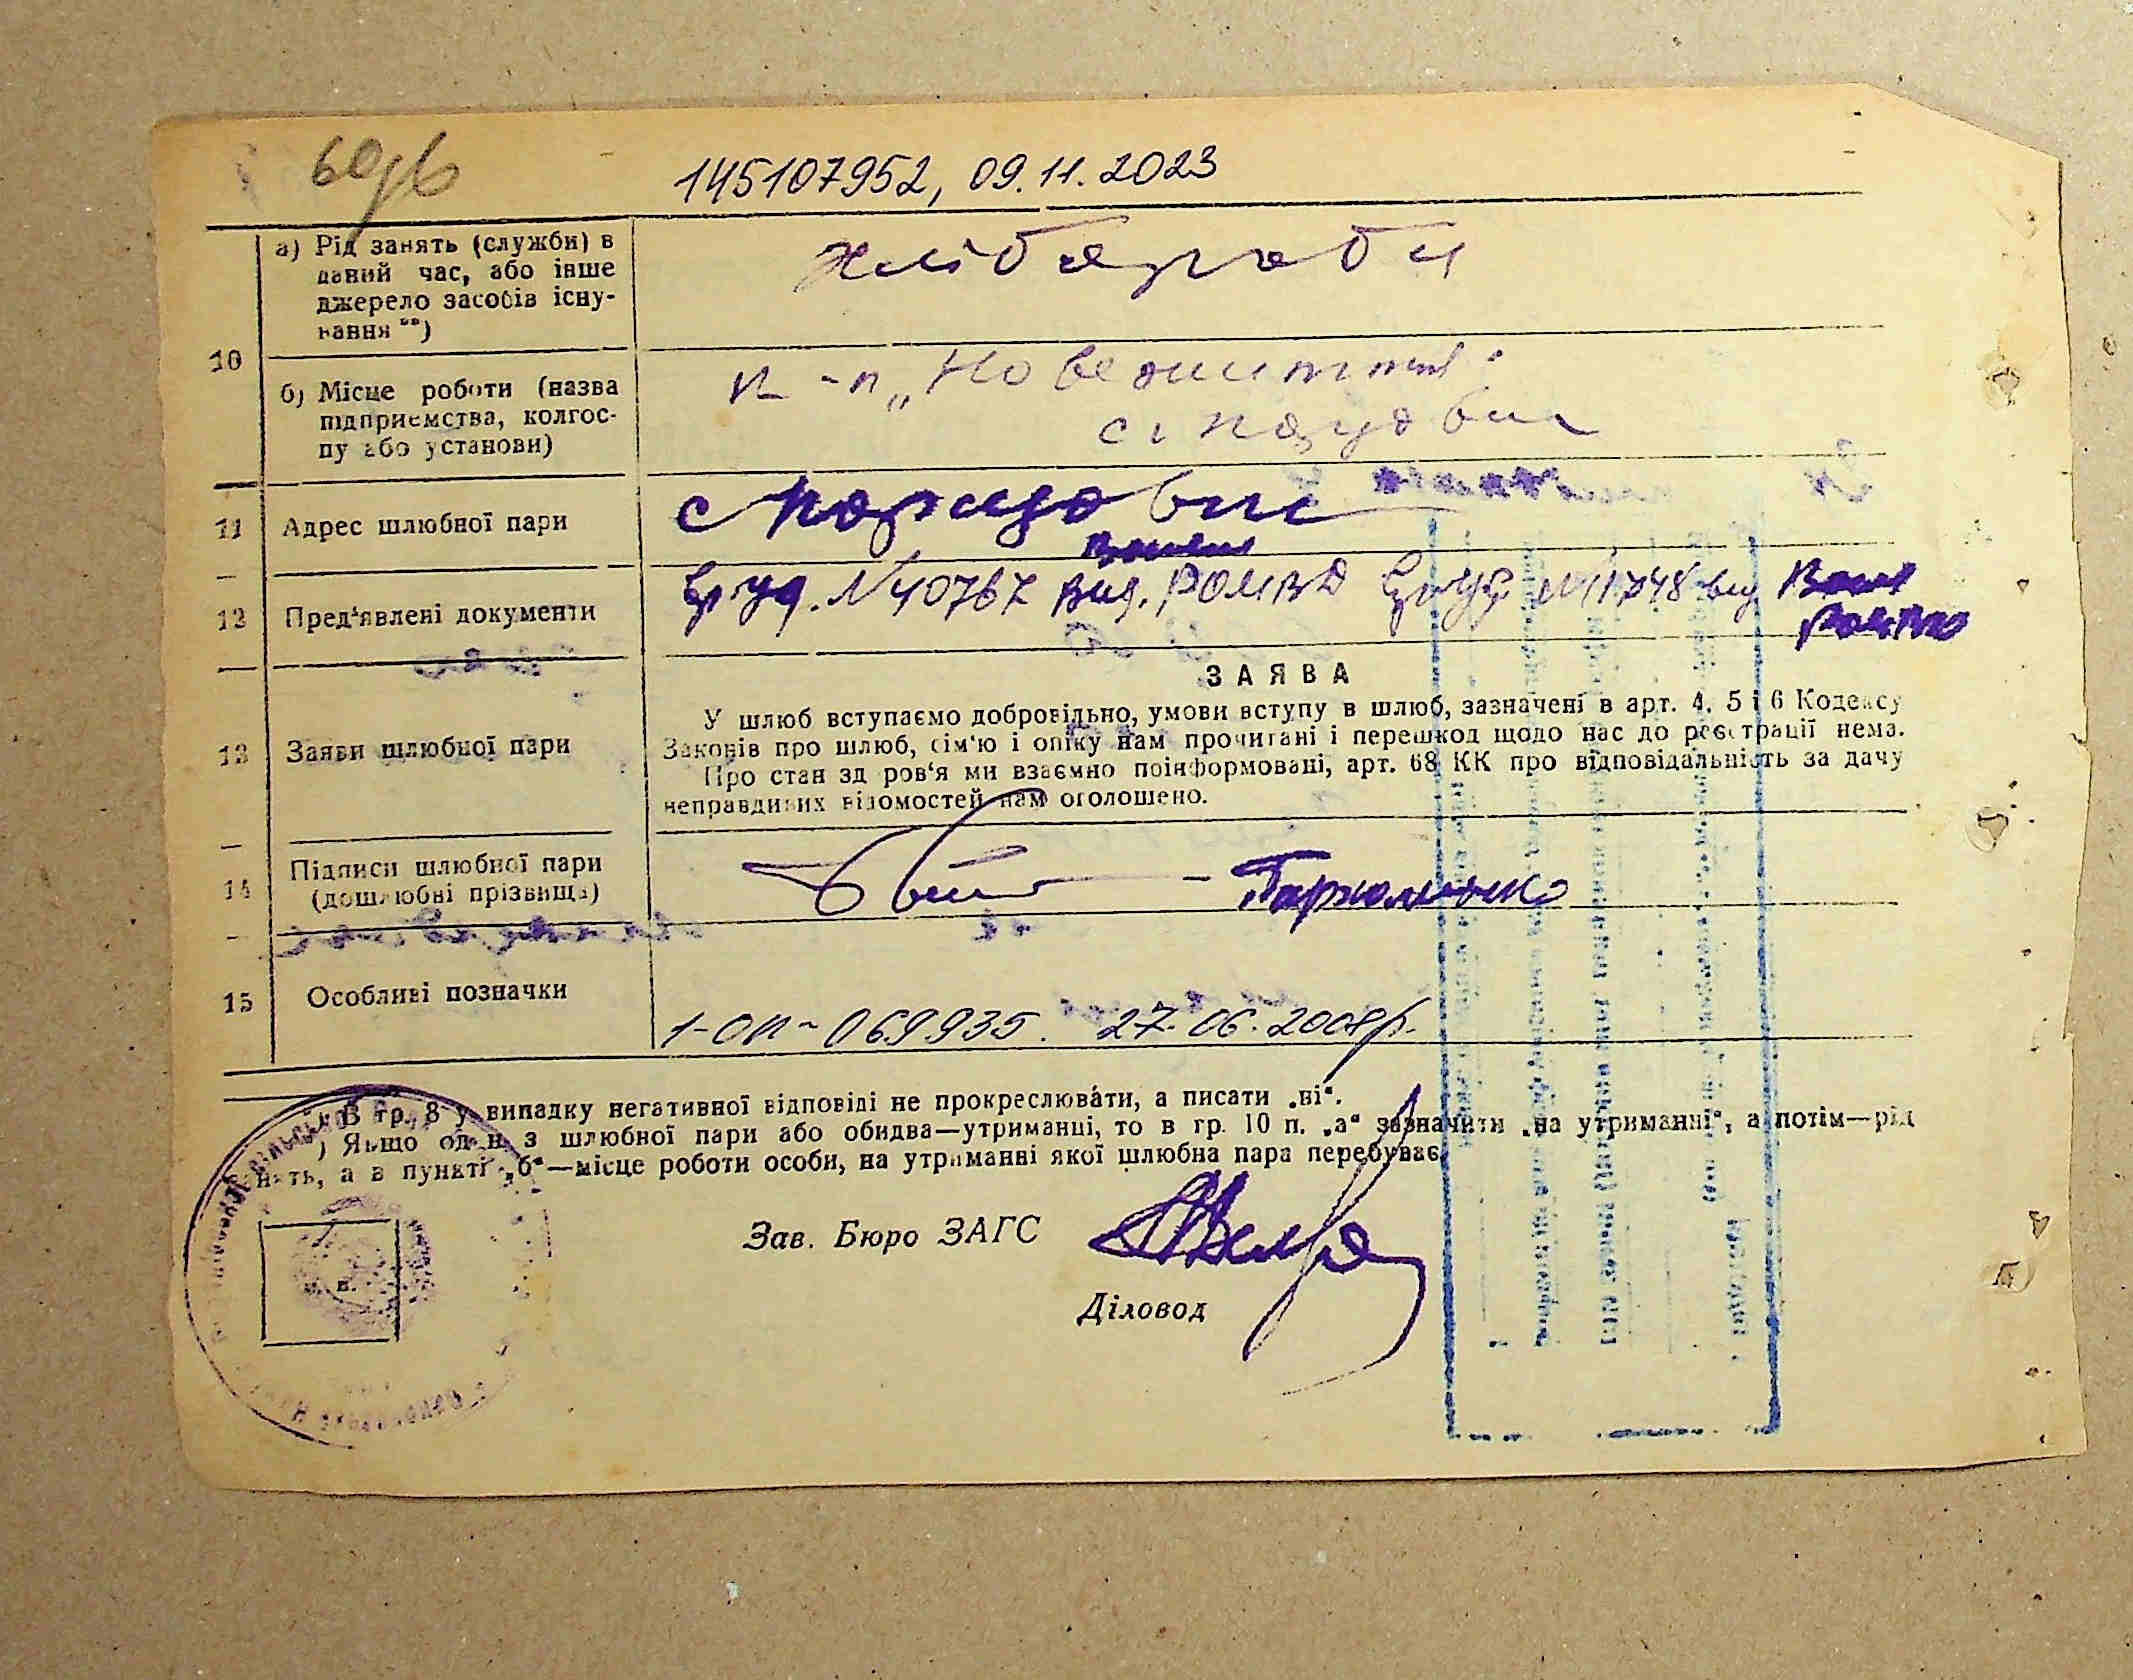 145107952, 09.11.2023
10
а) Рід занять (служби) в
даний час, або інше
джерело засобів існу-
вання **)
хлібороби
б) Місце роботи (назва
підприємства, колгос-
пу або установи)
к-п „Нове життя"
11
Адрес шлюбної пари
с
12
Пред'явлені документи
№ 40767 вид. РОМВД № 11748 вид
РОМВД
13
Заяви шлюбної пари
ЗАЯВА
У шлюб вступаємо добровільно, умови вступу в шлюб, зазначені в арт. 4, 5 і 6 Кодексу
Законів про шлюб, сім'ю і опіку нам прочитані і перешкод щодо нас до реєстрації нема.
Про стан здоров'я ми взаємно поінформовані, арт. 68 КК про відповідальність за дачу
неправдивих відомостей нам оголошено.
14
Підписи шлюбної пари
(дошлюбні прізвища)
Пархоменко
15
Особливі позначки
1-ОП-069935. 27.06.2008р.
В гр. 8 у випадку негативної відповіді не прокреслювати, а писати „ні".
) Якщо один з шлюбної пари або обидва—утриманці, то в гр. 10 п. „а" зазначити „на утриманні", а потім—рід
занять, а в пункті „б"—місце роботи особи, на утриманні якої шлюбна пара перебуває.
Зав. Бюро ЗАГС
Діловод